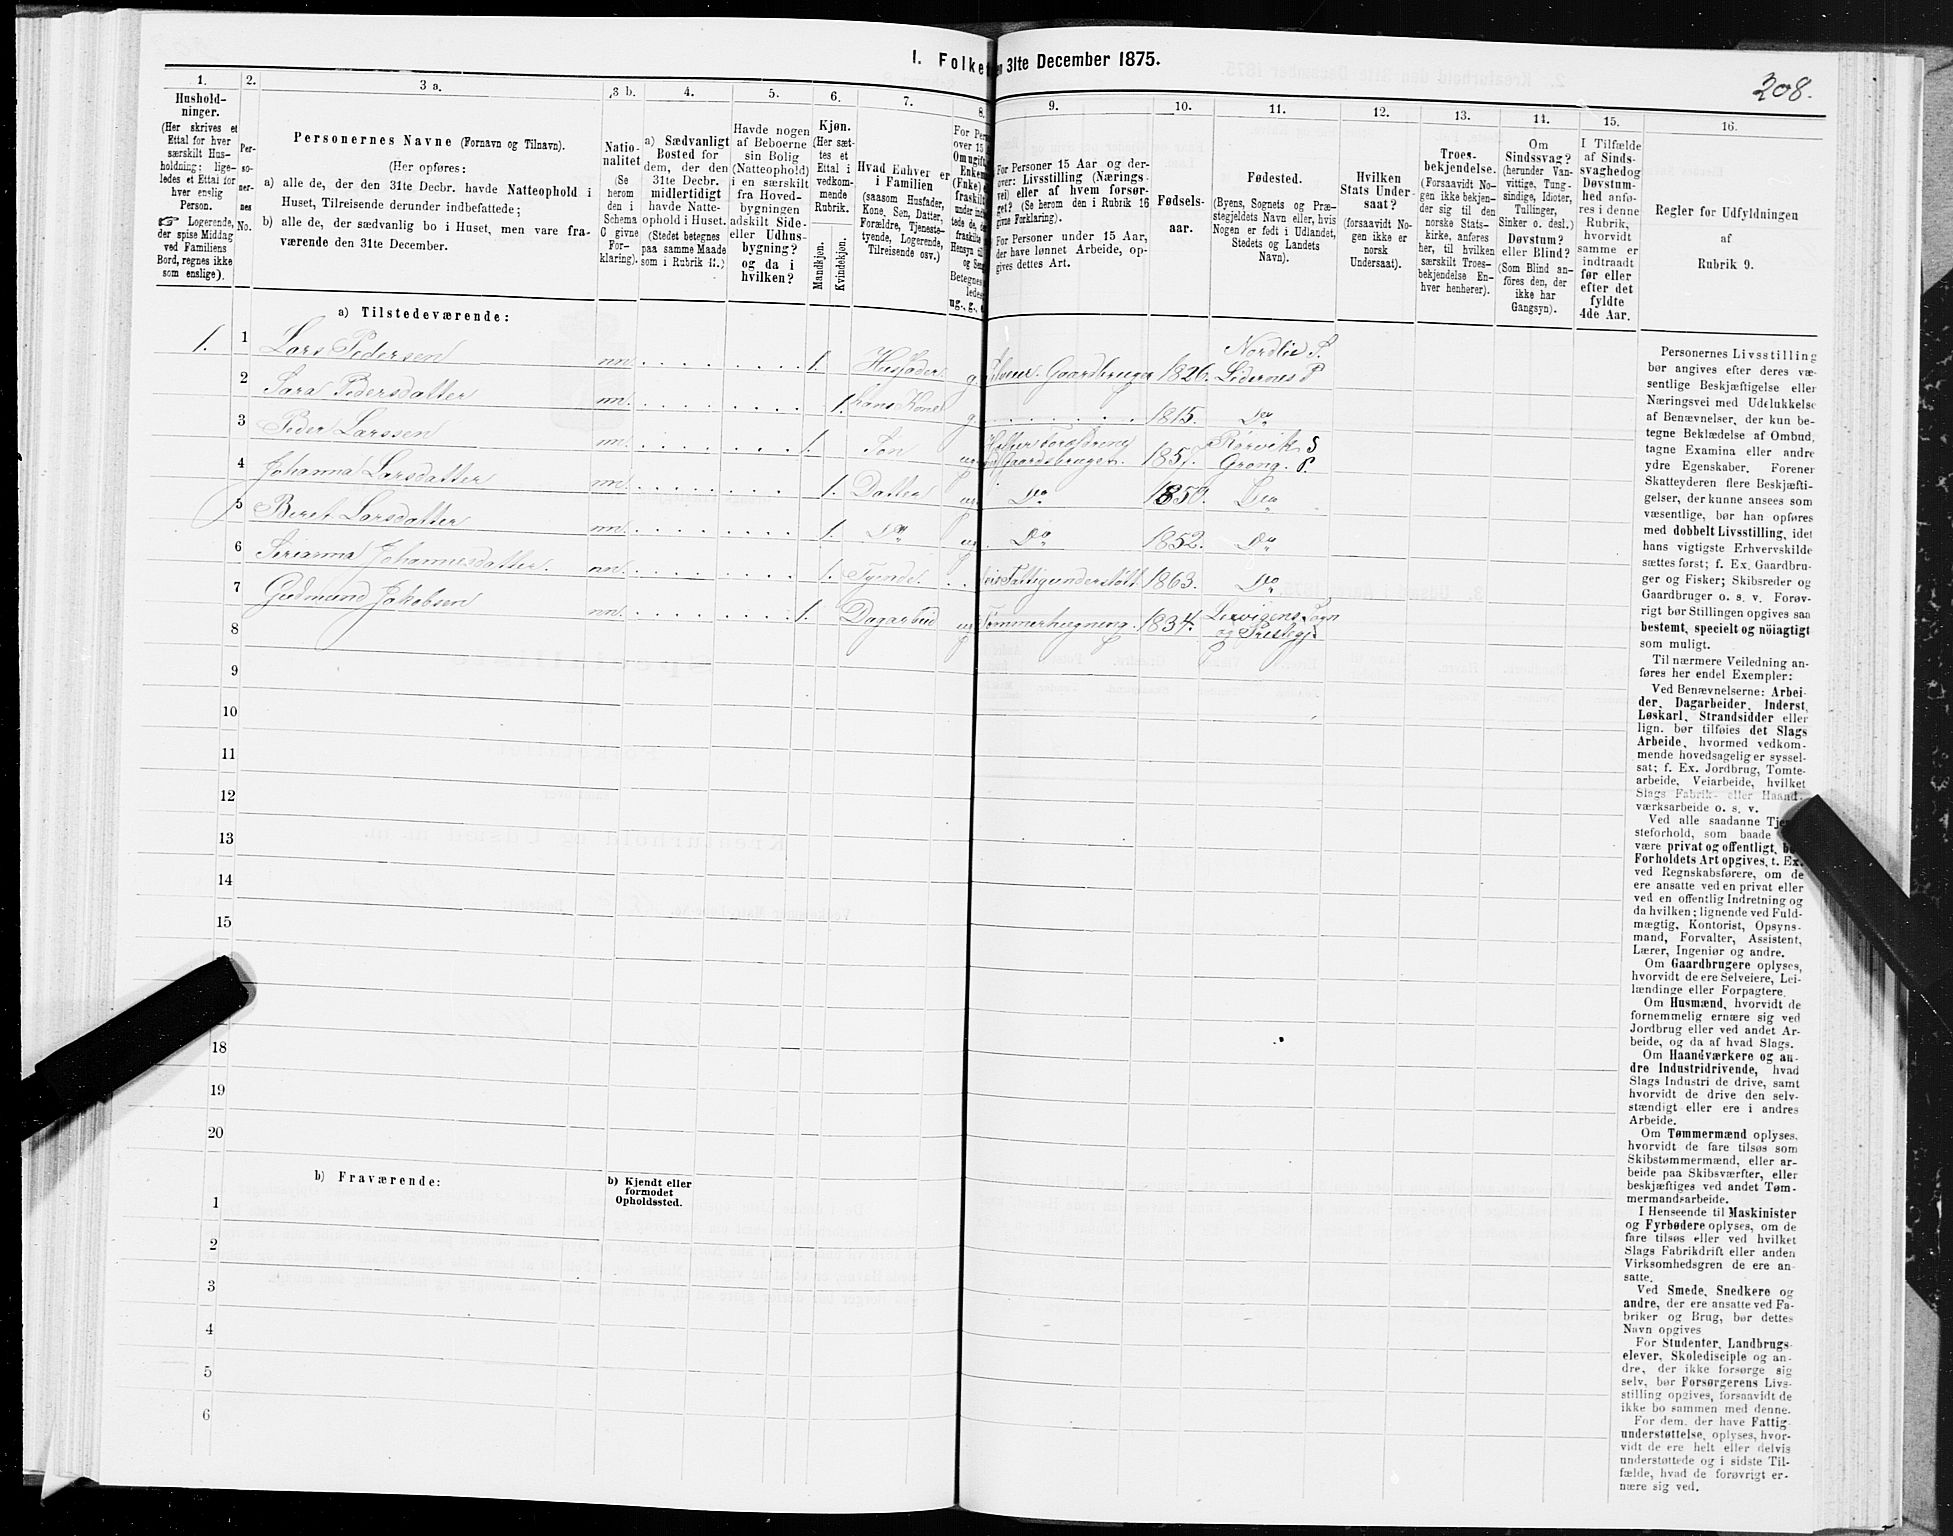 I. Folke
en 31te December 1875.
308.
1.
2.
3 a.
3 b.
4.
5.
6.
7.
8.
9.
10.
11.
12.
13.
14.
15.
16.
Hushold-
ninger.
(Her skrives et
Ettal for hver
særskilt Hus-
holdning; lige-
ledes et Ettal for
hver enslig
Person.
☞ Logerende,
der spise Middag
ved Familiens
Bord, regnes ikke
som enslige).
Per-
so-
ner-
nes
No.
Personernes Navne (Fornavn og Tilnavn).
(Her opføres:
a) alle de, der den 31te Decbr. havde Natteophold i
Huset, Tilreisende derunder indbefattede;
b) alle de, der sædvanlig bo i Huset, men vare fra-
værende den 31te December.
Natio-
nalitet
(Se
herom
den i
Schema
C givne
For-
klaring).
a) Sædvanligt
Bosted for
dem, der den
31te Decbr.
midlertidigt
havde Natte-
ophold i Huset.
(Stedet betegnes
paa samme Maade
som i Rubrik 11.)
Havde nogen
af Beboerne
sin Bolig
(Natteophold)
i en særskilt
fra Hoved-
bygningen
adskilt Side-
eller Udhus-
bygning?
og da i
hvilken?
Kjøn.
(Her sæt-
tes et
Ettal i
vedkom-
mende
Rubrik.
Mandkjøn.
Kvindekjøn.
Hvad Enhver er
i Familien
(saasom Husfader,
Kone, Søn, Datter,
Forældre, Tjeneste-
tyende, Logerende,
Tilreisende osv.)
For Per
over 15
Omugift
Enkem
(Enke)
fraskilt
under indt
tede de, d
fraskilte
Hensyn til
og Sen
Betegnes
ledes
ug., g., e
For Personer 15 Aar og der-
over: Livsstilling (Nærings-
vei) eller af hvem forsør-
get? (Se herom den i Rubrik 16
givne Forklaring).
For Personer under 15 Aar,
der have lønnet Arbeide, op-
gives dettes Art.
Fødsels-
aar.
Fødested.
(Byens, Sognets og Præ-
stegjeldets Navn eller, hvis
Nogen er født i Udlandet,
Stedets og Landets
Navn).
Hvilken
Stats Under-
saat?
(forsaavidt No-
gen ikke er
norsk
Undersaat).
Troes-
bekjendelse.
(Forsaavidt No-
gen ikke bekjen-
der sig til den
norske Stats-
kirke, anføres
her, til hvilken
særskilt Troes-
bekjendelse En-
hver henhører).
Om
Sindssvag?
(herunder Van-
vittige, Tung-
sindige, Idioter,
Tullinger,
Sinker o. desl.)
Døvstum?
eller Blind?
(Som Blind an-
føres den, der
ikke har
Gangsyn).
I Tilfælde
af Sinds-
svaghedog
Døvstum-
hed anfø-
res i denne
Rubrik,
hvorvidt
samme er
indtraadt
før eller
efter det
fyldte
4de Aar.
Regler for Udfyldningen
af
Rubrik 9.
a) Tilstedeværende:
1. 1 Lars Pedersen nn. 1. Husfader g. Gaardbruger 1826. Nordlie S. P
2 Sara Pedersdatter nn. 1. hans Kone g. 1815. Do
3 Peder Larssen nn. 1. Søn ug. Gaardsbruger. 1857. Rørvik S Grong. P.
4 Johanna Larsdatter nn. 1. Datter ug. Do 1850. Do
5 Beret Larsdatter nn. 1. Do ug. Do 1852. Do
6 Johannesdatter. nn. 1. Tyende Fattigunderstøtt. 1863. Do
7 Gudmund Jakobsen nn. 1. Dagarbeid ug Tømmerhugning. 1834. Sogn og Prestegj.
8
9
10
11
12
13
14
15
18
19
20
b) Fraværende:
b) Kjendt eller
formodet
Opholdssted.
1
2
3
4
5
6
Personernes Livsstilling
bør angives efter deres væ-
sentlige Beskjæftigelse eller
Næringsvei med Udelukkelse
af Benævnelser, der kun be-
tegne Beklædelse af Ombud,
tagne Examina eller andre
ydre Egenskaber. Forener
Skatteyderen flere Beskjæfti-
gelser, der kunne ansees som
væsentlige, bør han opføres
med dobbelt Livsstilling, idet
hans vigtigste Erhvervskilde
sættes først; f. Ex. Gaardbru-
ger og Fisker; Skibsreder og
Gaardbruger o. s. v. Forøv-
rigt bør Stillingen opgives saa
bestemt, specielt og nöiagtigt
som muligt.
Til nærmere Veiledning an-
føres her endel Exempler:
Ved Benævnelserne: Arbei-
der, Dagarbeider, Inderst,
Løskarl, Strandsidder eller
lign. bør tilføies det Slags
Arbeide, hvormed vedkom-
mende hovedsagelig er syssel-
sat; f. Ex. Jordbrug, Tomte-
arbeide, Veiarbeide, hvilket
Slags Fabrik- eller Haand-
værksarbeide o. s. v.
Ved alle saadanne Tje
steforhold, som baade
være privat og offentligt, b
Forholdets Art opgives, t. Ex.
ved Regnskabsførere, om de
ere ansatte ved en privat eller
ved en offentlig Indretning og
da hvilken; lignende ved Fuld-
mægtig, Kontorist, Opsyns-
mand, Forvalter, Assistent,
Lærer, Ingeniør og andre.
Om Gaardbrugere oplyses,
hvorvidt de ere Selveiere, Lei-
lændinge eller Forpagtere.
Om Husmænd, hvorvidt de
fornemmelig ernære sig ved
Jordbrug eller ved andet Ar-
beide, og da af hvad Slags.
Om Haandværkere og an-
dre Industridrivende, hvad
Slags Industri de drive, samt
hvorvidt de drive den selv-
stændigt eller ere i andres
Arbeide.
Om Tømmermænd oplyses,
hvorvidt de fare tilsøs som
Skibstømmermænd, eller ar-
beide paa Skibsværfter, eller
beskjæftiges ved andet Tøm-
mermandsarbeide.
I Henseende til Maskinister
og Fyrbødere oplyses, om de
fare tilsøs eller ved hvilket
Slags Fabrikdrift eller anden
Virksomhedsgren de ere an-
satte.
Ved Smede, Snedkere og
andre, der ere ansatte ved Fa-
briker og Brug, bør dettes
Navn opgives
For Studenter, Landbrugs-
elever, Skoledisciple og an-
dre, der ikke forsørge sig
selv, bør Forsørgerens Livs-
stilling opgives, forsaavidt de
ikke bo sammen med denne.
For dem, der have Fattig-
understøttelse, oplyses, hvor-
vidt de ere helt eller delvis
understøttede og i sidste Til-
fælde, hvad de forøvrigt er-
nære sig ved.